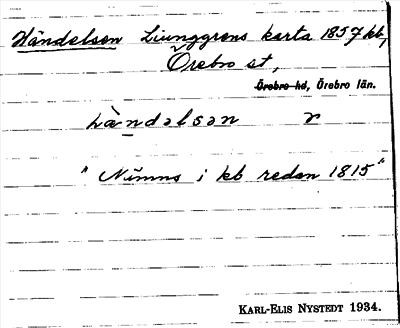 Händelsen Ljunggrens karta 1857 kb,
Örebro st,
Örebro hd, Örebro län.
hàndəlsən r
"Nämns i kb redan 1815"
KARL-ELIS NYSTEDT 1934.